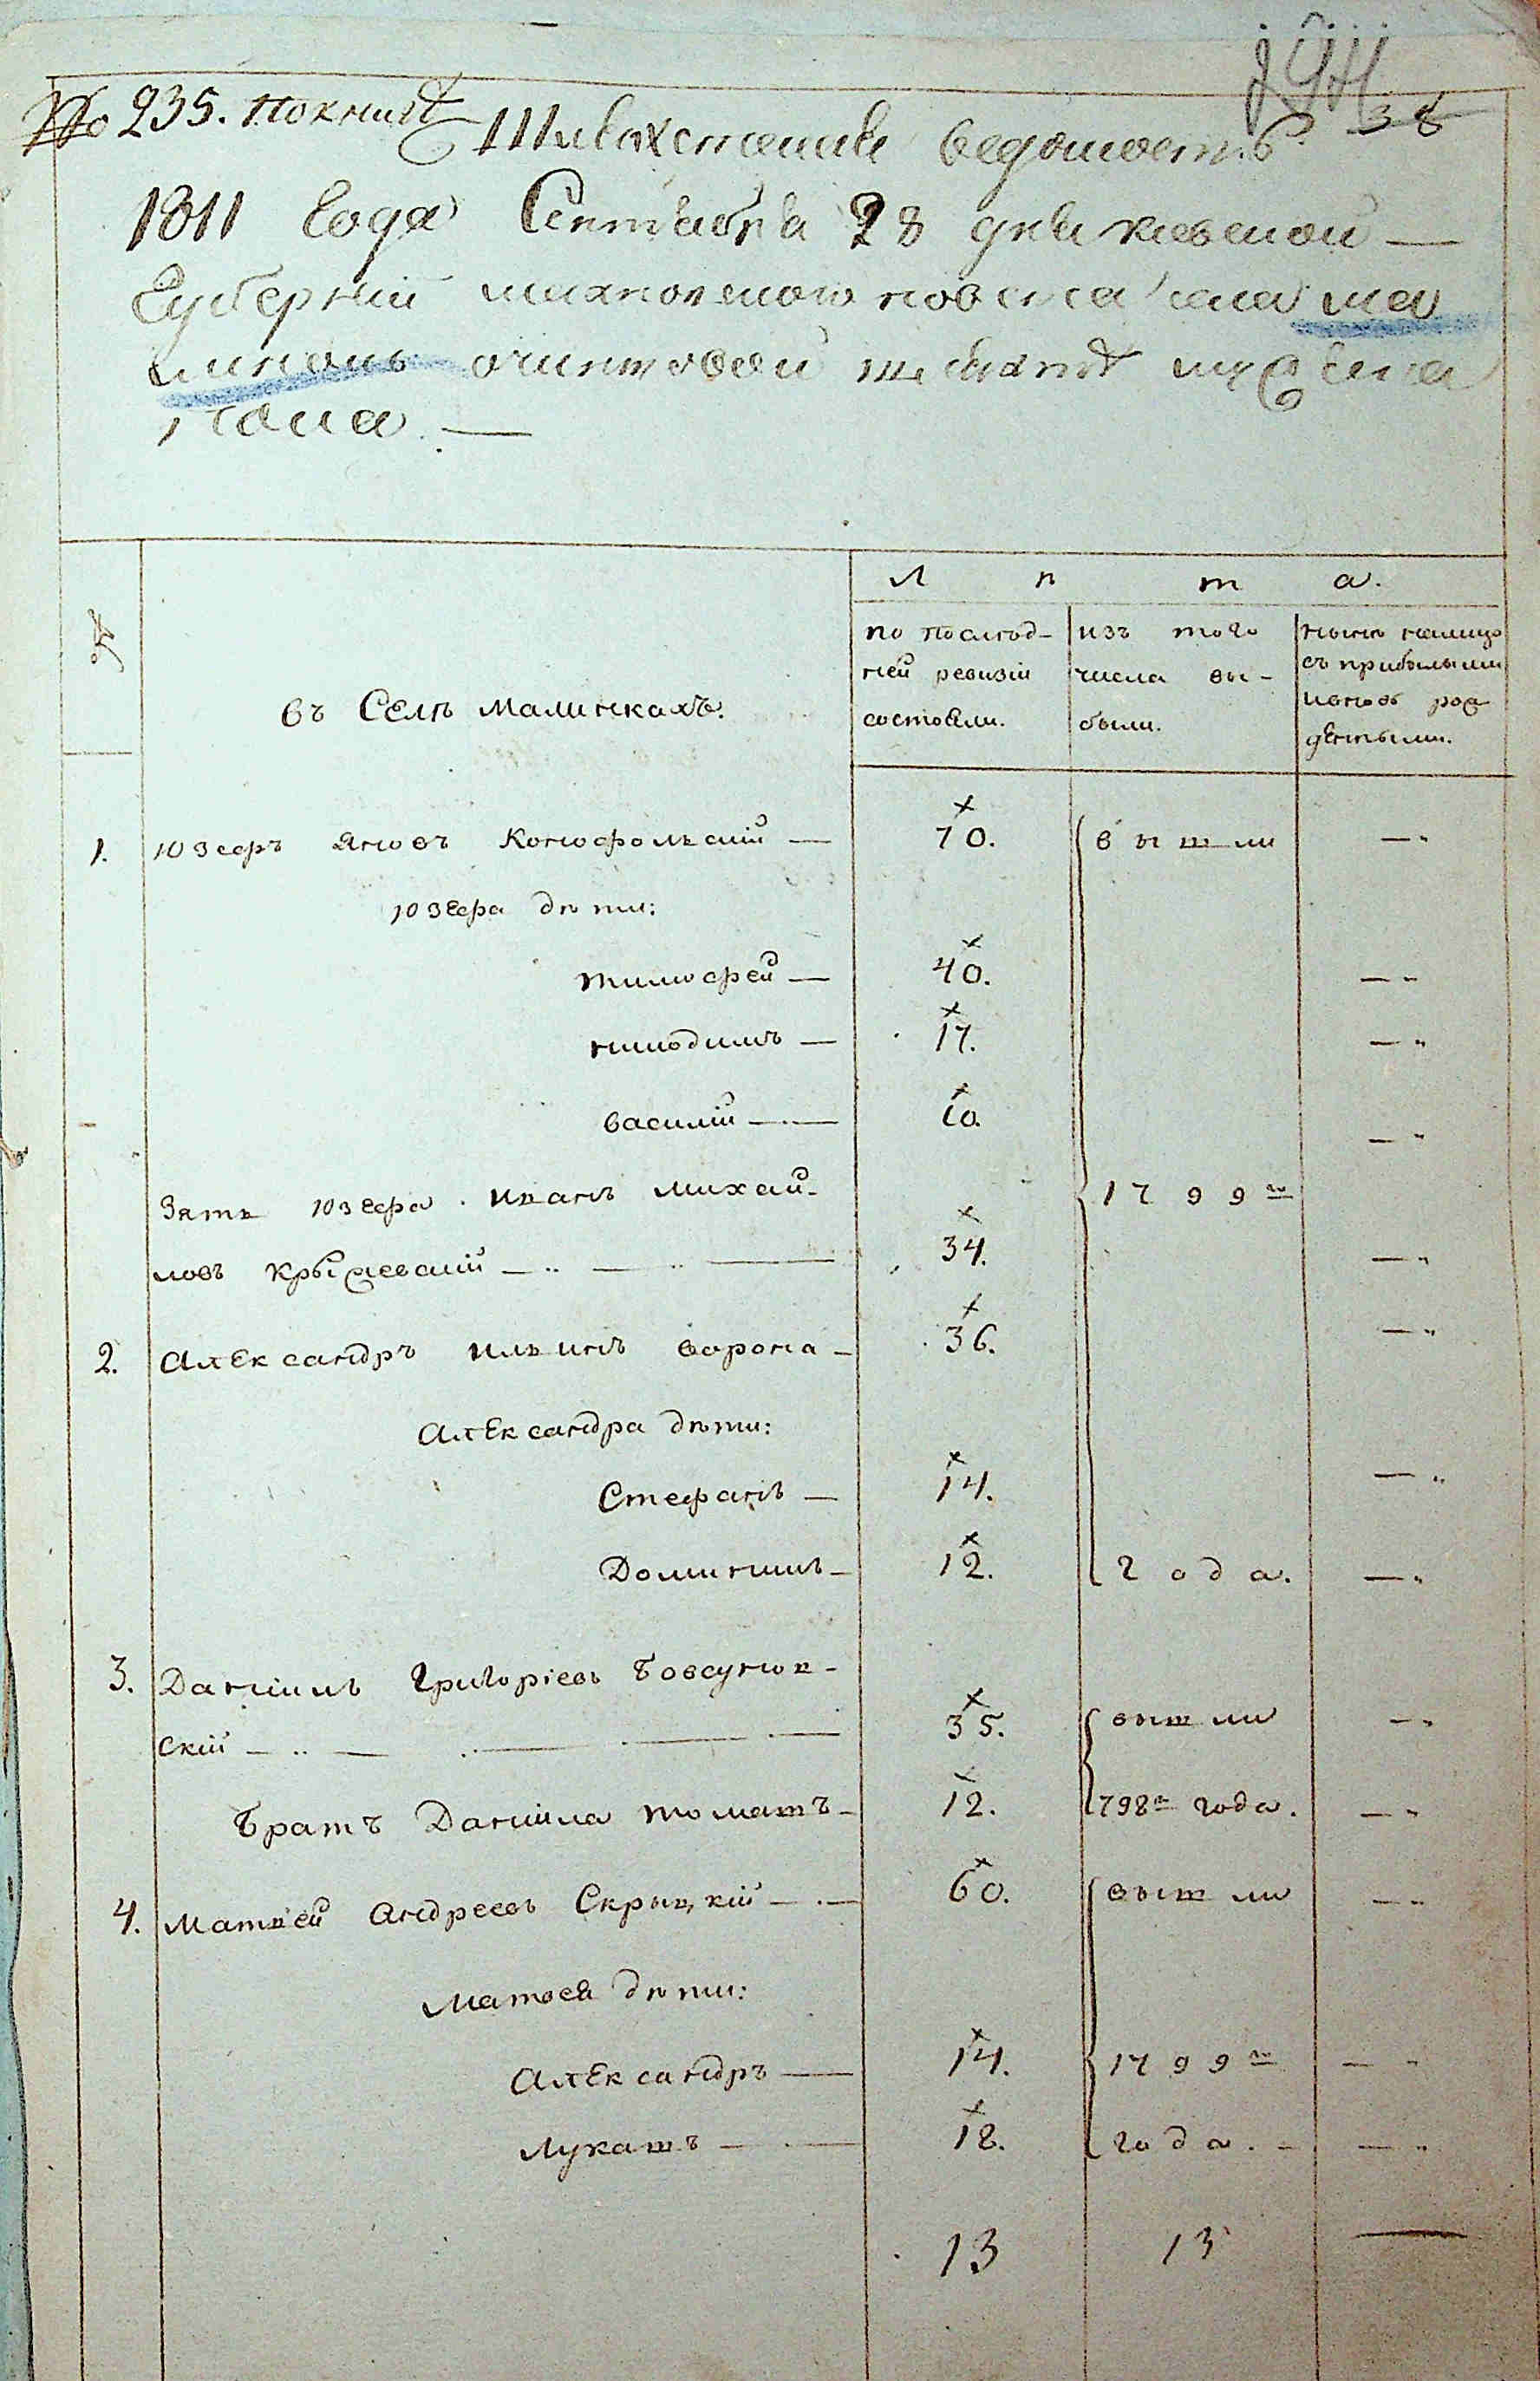 № 235. по книгѣ
38
Шляхетская ведомость
1811 Года Сентября 28 дня киевской —
Губерній махновского повета села ма
линокъ о чиншовой шляхтѣ мужеска
пола. —
№
въ Селѣ Малинкахъ.
Л ѣ т а.
по послѣд-
ней ревизіи
состояли.
изъ того
числа вы-
были.
нынѣ налицо
съ прибылыми
и вновь рож
денными.
1. Юзефъ Яновъ Конофольский — 70. вышли —„
Юзефа дѣти:
тимофей — 40. —„
никодимъ — 17. —„
василій — 10. —„
Зять Юзефа иванъ михай- 1799го
ловъ крыжевскій — 34. —„
2. Александръ ильинъ ворона — 36. —„
Александра дѣти:
Стефанъ — 14. —„
Доминикъ — 12. года. —„
3. Даниилъ Григоріевъ Бовсунов-
скій — 35. вышли —„
Братъ Даниила томашъ — 12. 798го года. —„
4. Матвей Андреевъ Скрыцкій — 60. вышли —„
Матвея дѣти:
Александръ — 14. 1799го —„
Лукашъ — 12. года. —„
13 13 —